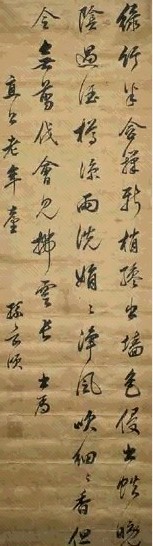 綠竹半含籜新梢纔出墻色侵書帙晚
陰過酒樽涼雨洗娟〻淨風吹細〻香但
令無翦伐會見拂雲長 書為
公老年臺 孫岳頒